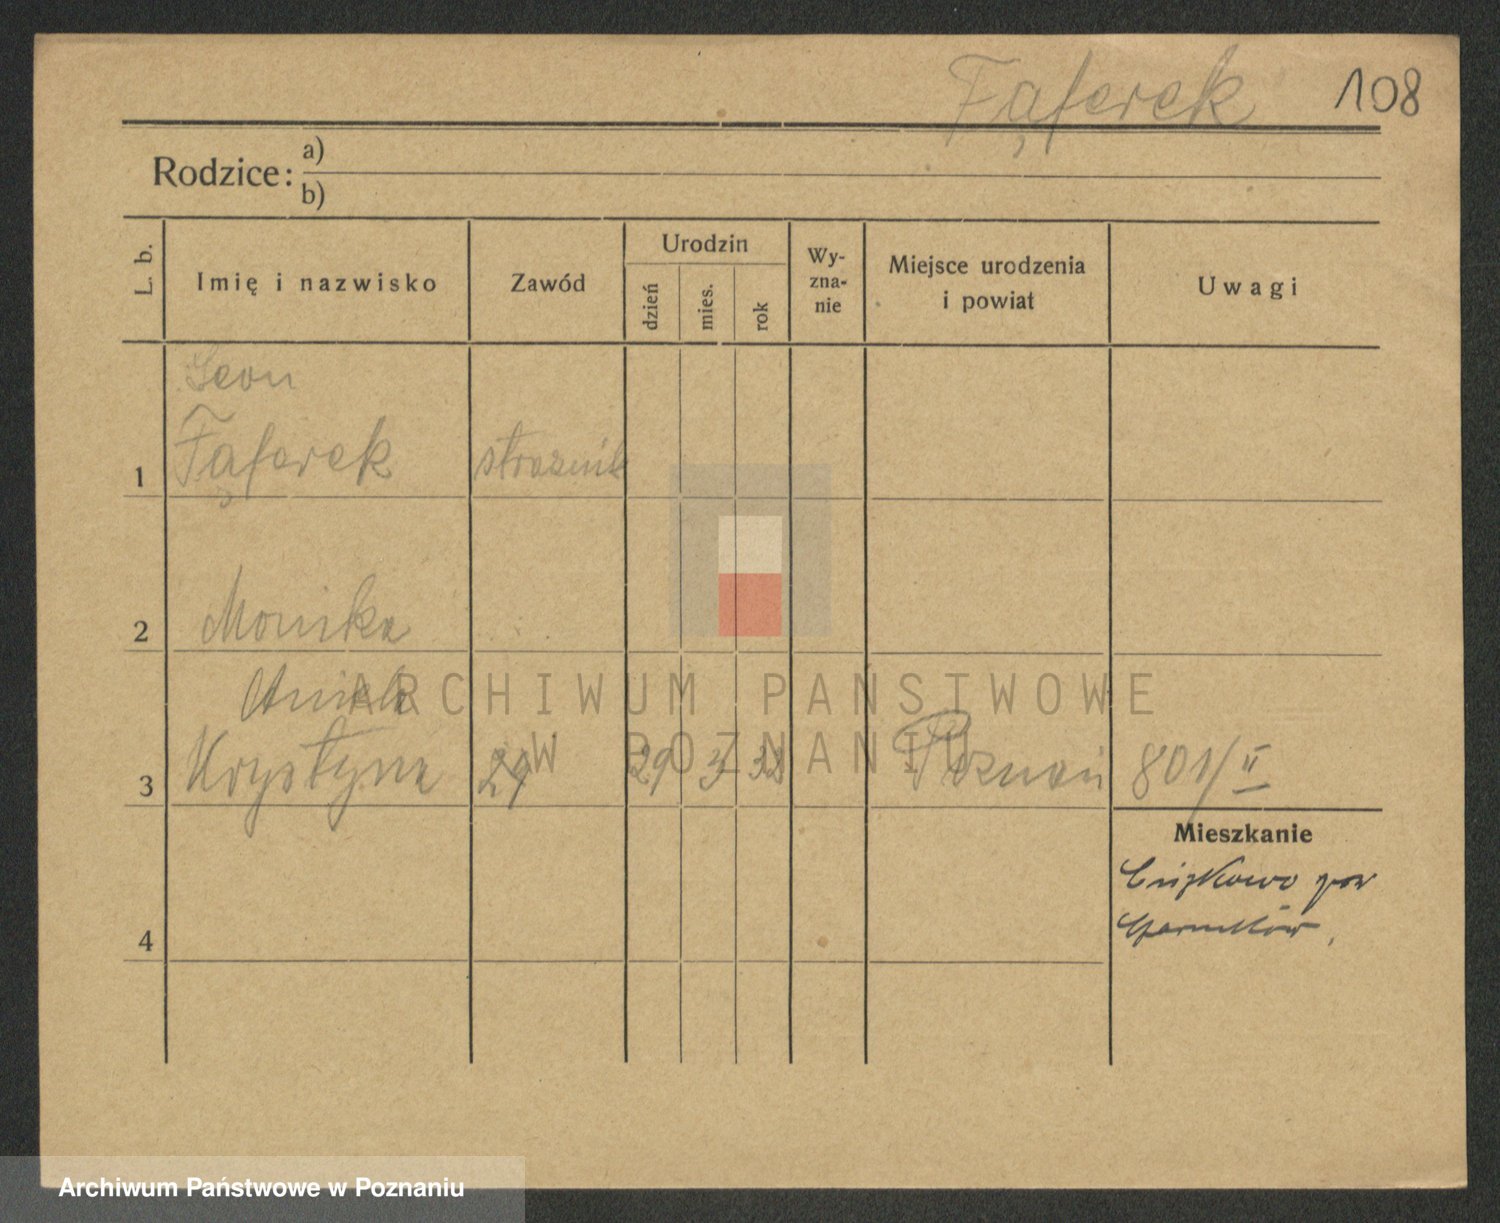 Fąferek 108
Rodzice: a)
b)
L. b.
Imię i nazwisko
Zawód
Urodzin
dzień
mies.
rok
Wy-
zna-
nie
Miejsce urodzenia
i powiat
Uwagi
Leon
1 Fąferek strażnik
2 Monika
Aniela
3 Krystyna 29 3 32 Poznań 801/II
Mieszkanie
pow
Czarnków,
4
ARCHIWUM PAŃSTWOWE
W POZNANIU
Archiwum Państwowe w Poznaniu